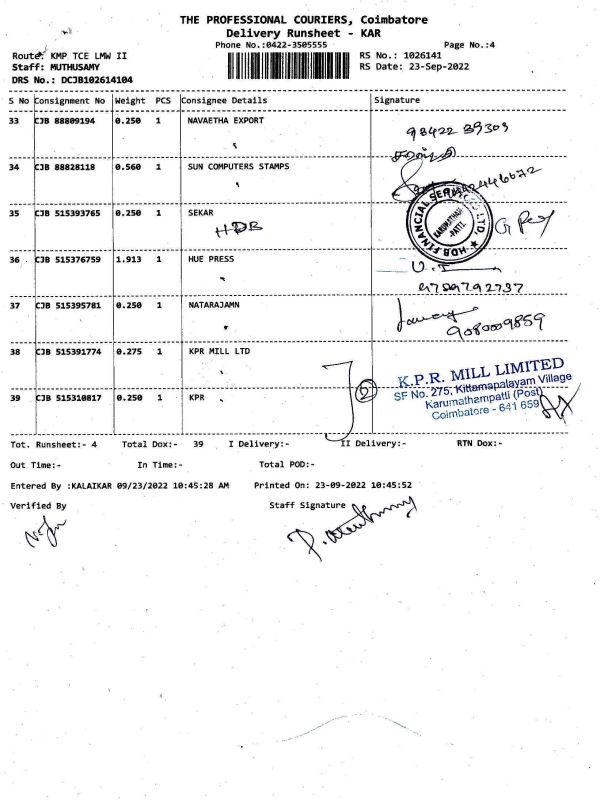 THE PROFESSIONAL COURIERS, Coimbatore
Delivery Runsheet - KAR
Phone No.:0422-3505555 Page No.:4
Route: KMP TCE LMW II RS No.: 1026141
Staff: MUTHUSAMY RS Date: 23-Sep-2022
DRS No.: DCJB102614104
S No Consignment No Weight PCS Consignee Details Signature
33 CJB 88809194 0.250 1 NAVAETHA EXPORT
98422 39309
34 CJB 88828118 0.560 1 SUN COMPUTERS STAMPS
35 CJB 515393765 0.250 1 SEKAR
HDB
HDB FINANCIAL SERVICES LTD.
KARUMATHAM
-PATTI.
36 CJB 515376759 1.913 1 HUE PRESS
9789792737
37 CJB 515395781 0.250 1 NATARAJAMN
9080009859
38 CJB 515391774 0.275 1 KPR MILL LTD
K.P.R. MILL LIMITED
SF No. 275, Kittampalayam Village
Karumathampatti (Post)
Coimbatore - 641 659
39 CJB 515310817 0.250 1 KPR
2
Tot. Runsheet:- 4 Total Dox:- 39 I Delivery:- II Delivery:- RTN Dox:-
Out Time:- In Time:- Total POD:-
Entered By :KALAIKAR 09/23/2022 10:45:28 AM Printed On: 23-09-2022 10:45:52
Verified By Staff Signature